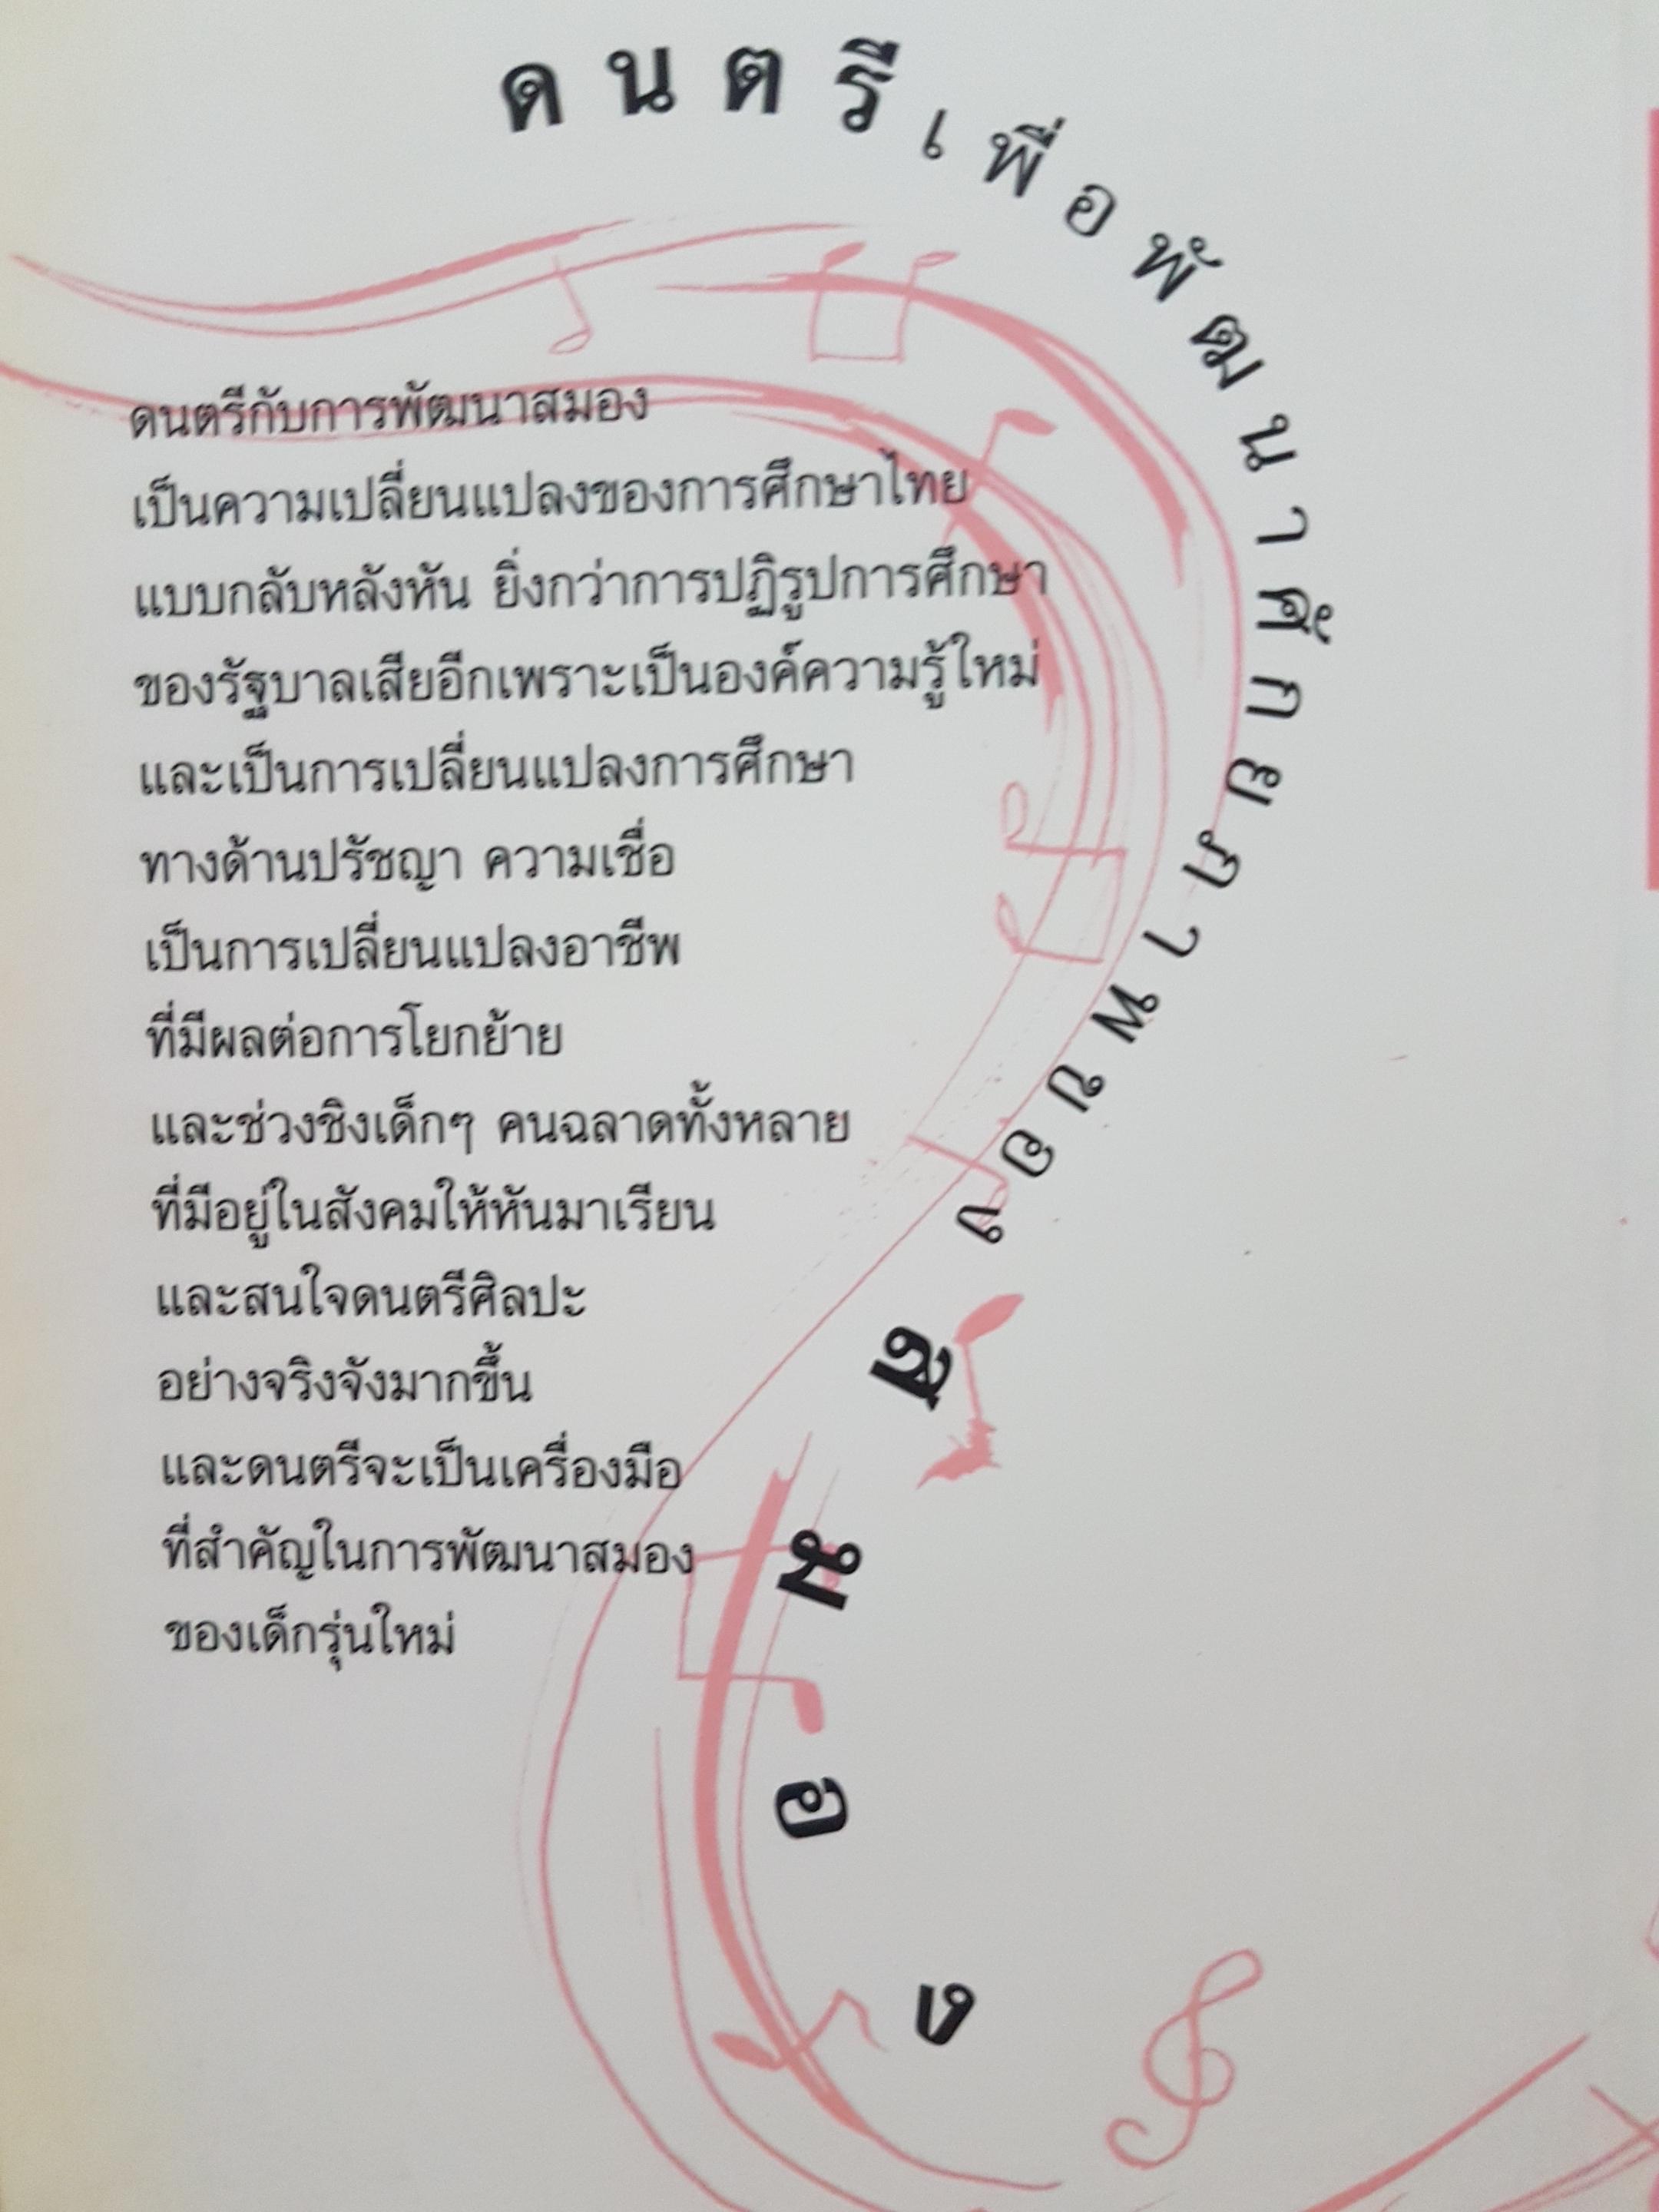 ดนตรีเพื่อพัฒนาศักยภาพของสมอง
ดนตรีกับการพัฒนาสมอง
เป็นความเปลี่ยนแปลงของการศึกษาไทย
แบบกลับหลังหัน ยิ่งกว่าการปฏิรูปการศึกษา
ของรัฐบาลเสียอีกเพราะเป็นองค์ความรู้ใหม่
และเป็นการเปลี่ยนแปลงการศึกษา
ทางด้านปรัชญา ความเชื่อ
เป็นการเปลี่ยนแปลงอาชีพ
ที่มีผลต่อการโยกย้าย
และช่วงชิงเด็กๆ คนฉลาดทั้งหลาย
ที่มีอยู่ในสังคมให้หันมาเรียน
และสนใจดนตรีศิลปะ
อย่างจริงจังมากขึ้น
และดนตรีจะเป็นเครื่องมือ
ที่สำคัญในการพัฒนาสมอง
ของเด็กรุ่นใหม่